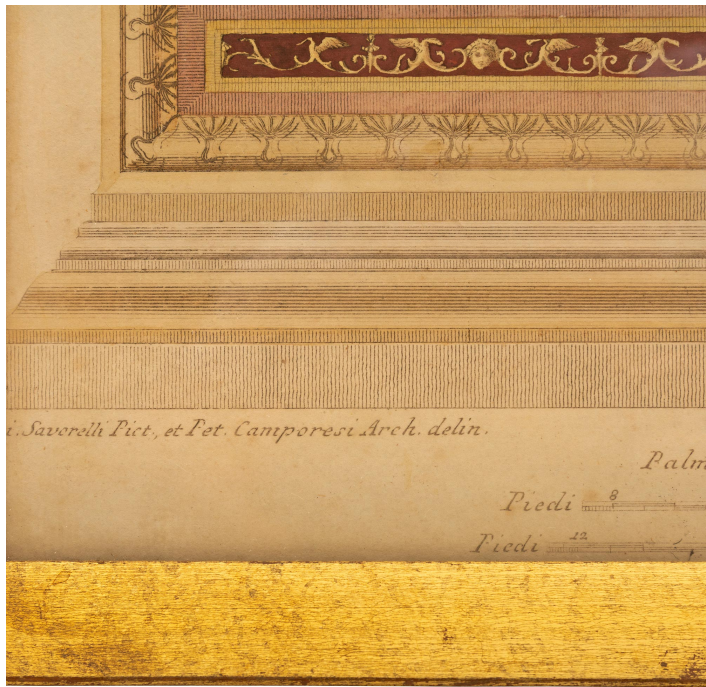 i. Savorelli Pict., et Pet. Camporesi Arch. delin.
Palm
Piedi 8
Piedi 12